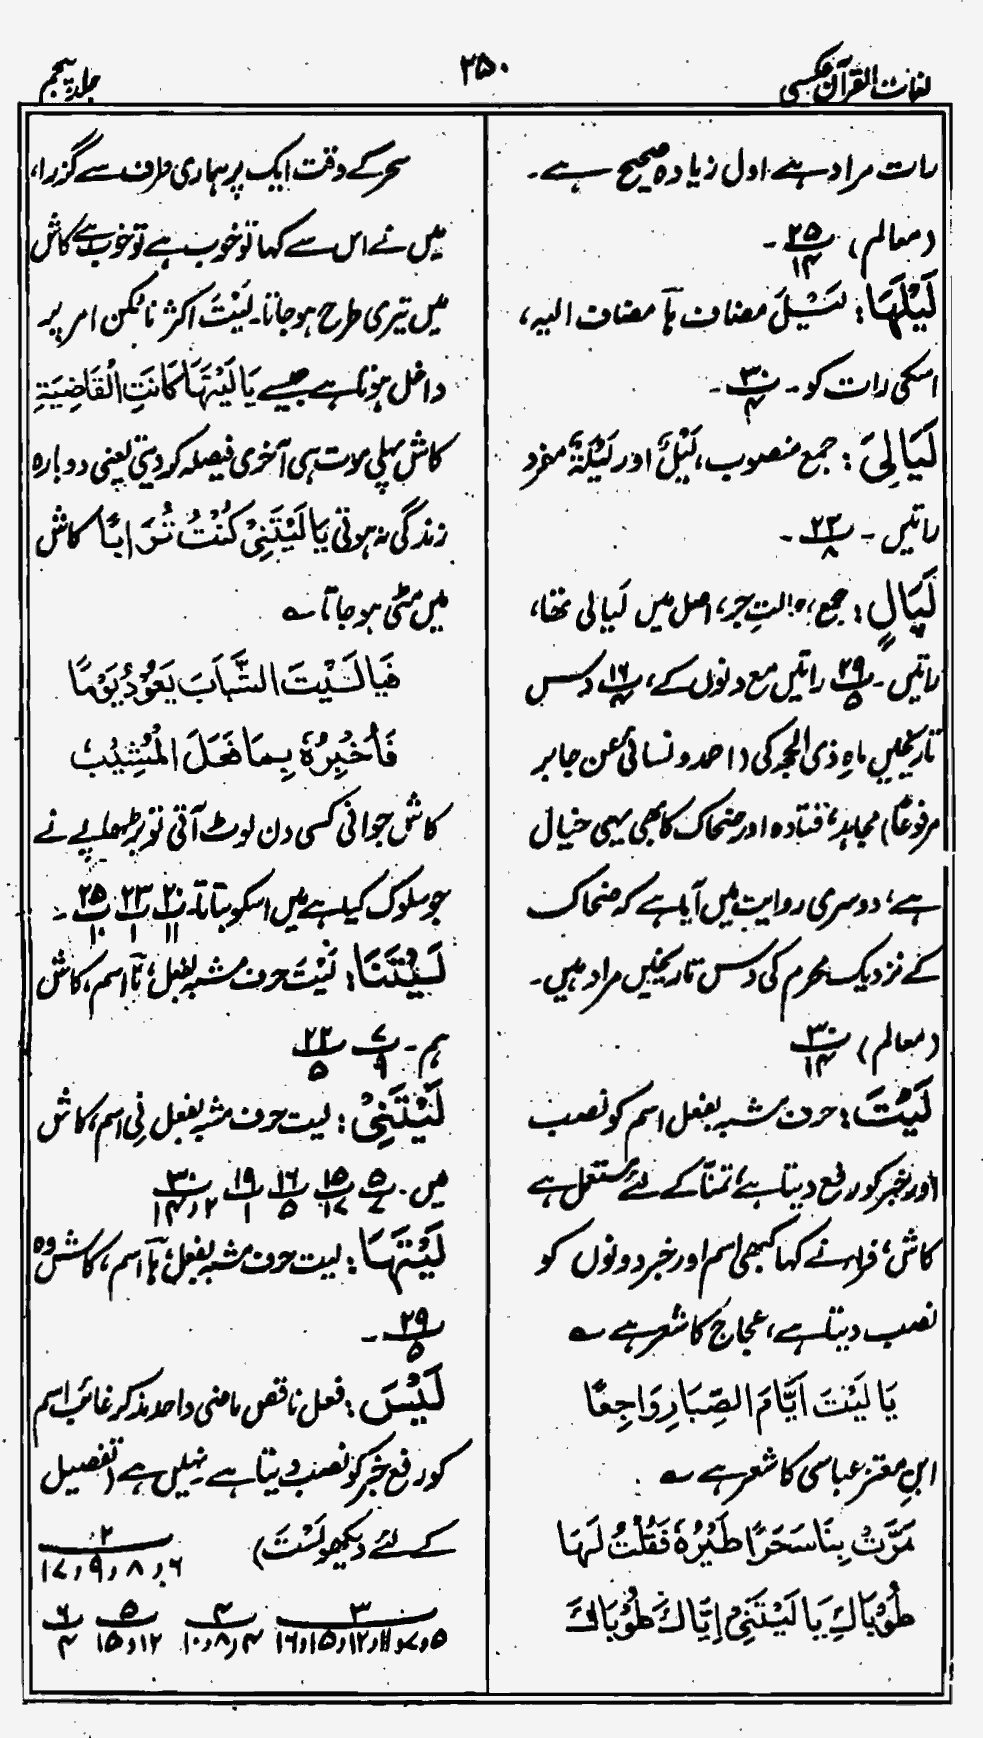 لغات القرآن عکسی
۲۵۰
جلد پنجم
رات مراد ہے اول زیادہ صحیح ہے۔
(معالم) ۲۵/۱۴ ۔
لَیْلَھَا: لَیْلَ مضاف ہآ مضاف الیہ،
اسکی رات کو۔ ۳۰/۴ ۔
لَیَالِیَ: جمع منصوب، لَیْلٌ اور لَیْلَۃٌ مفرد
راتیں۔ ۲۲/۸ ۔
لَیَالٍ: جمع، حالتِ جر، اصل میں لَیالی تھا،
راتیں۔ ۲۹/۵ راتیں مع دنوں کے، ۱۶/۴ دس
تاریخیں ماہِ ذی الحجہ کی (احمد و نسائی عن جابر
مرفوعًا) مجاہد، قتادہ اور ضحاک کا بھی یہی خیال
ہے، دوسری روایت میں آیا ہے کہ ضحاک
کے نزدیک محرم کی دس تاریخیں مراد ہیں۔
(معالم) ۳۰/۱۴
لَیْتَ: حرف مشبہ بفعل اسم کو نصب
اور خبر کو رفع دیتا ہے تمنّا کے لئے مستعمل ہے
کاش، فراء نے کہا کبھی اسم اور خبر دونوں کو
نصب دیتا ہے، عجاج کا شعر ہے ؎
یَا لَیْتَ اَیَّامَ الصِّبَا رَوَاجِعًا
ابنِ معتز عباسی کا شعر ہے ؎
مَرَّتْ بِنَا سَحَرًا طَیْرٌ فَقُلْتُ لَهَا
طُوْبَاكِ یَا لَیْتَنِیْ اِیَّاكَ طُوْبَاكَ
سحر کے وقت ایک پر ہماری طرف سے گزرا،
میں نے اس سے کہا تو خوب ہے تو خوب ہے کاش
میں تیری طرح ہو جاتا۔ لَیْتَ اکثر ناممکن امر پر
داخل ہوتا ہے جیسے یَا لَیْتَهَا کَانَتِ الْقَاضِیَةِ
کاش پہلی موت ہی آخری فیصلہ کر دیتی یعنی دوبارہ
زندگی نہ ہوتی یَا لَیْتَنِیْ کُنْتُ تُرَابًا کاش
میں مٹی ہو جاتا ؎
فَیَا لَیْتَ الشَّبَابَ یَعُوْدُ یَوْمًا
فَاُخْبِرُهٗ بِمَا فَعَلَ الْمُشِیْبُ
کاش جوانی کسی دن لوٹ آتی تو بڑھاپے نے
جو سلوک کیا ہے میں اسکو بتاتا۔ ۲۰/۱۱ ۲۳/۱ ۲۵/۱۰ ۔
لَیْتَنَا: لَیْتَ حرف مشبہ بفعل، نَا اسم، کاش
ہم۔ ۷/۹ ۲۲/۵
لَیْتَنِیْ: لیت حرف مشبہ بفعل نِی اسم، کاش
میں۔ ۵/۷ ۱۵/۱۷ ۱۶/۵ ۱۹/۱ ۳۰/۲،۱۴
لَیْتَهَا: لیت حرف مشبہ بفعل، ہَا اسم، کاش وہ
۲۹/۵ ۔
لَیْسَ: فعل ناقص ماضی واحد مذکر غائب اسم
کو رفع خبر کو نصب دیتا ہے نہیں ہے (تفصیل
کے لئے دیکھو لَسْتَ) ۲/۶،۸،۹،۱۷
۳/۵،۷،۱۱،۱۲،۱۵،۱۶ ۴/۴،۸،۱۰ ۵/۱۲،۱۵ ۶/۴